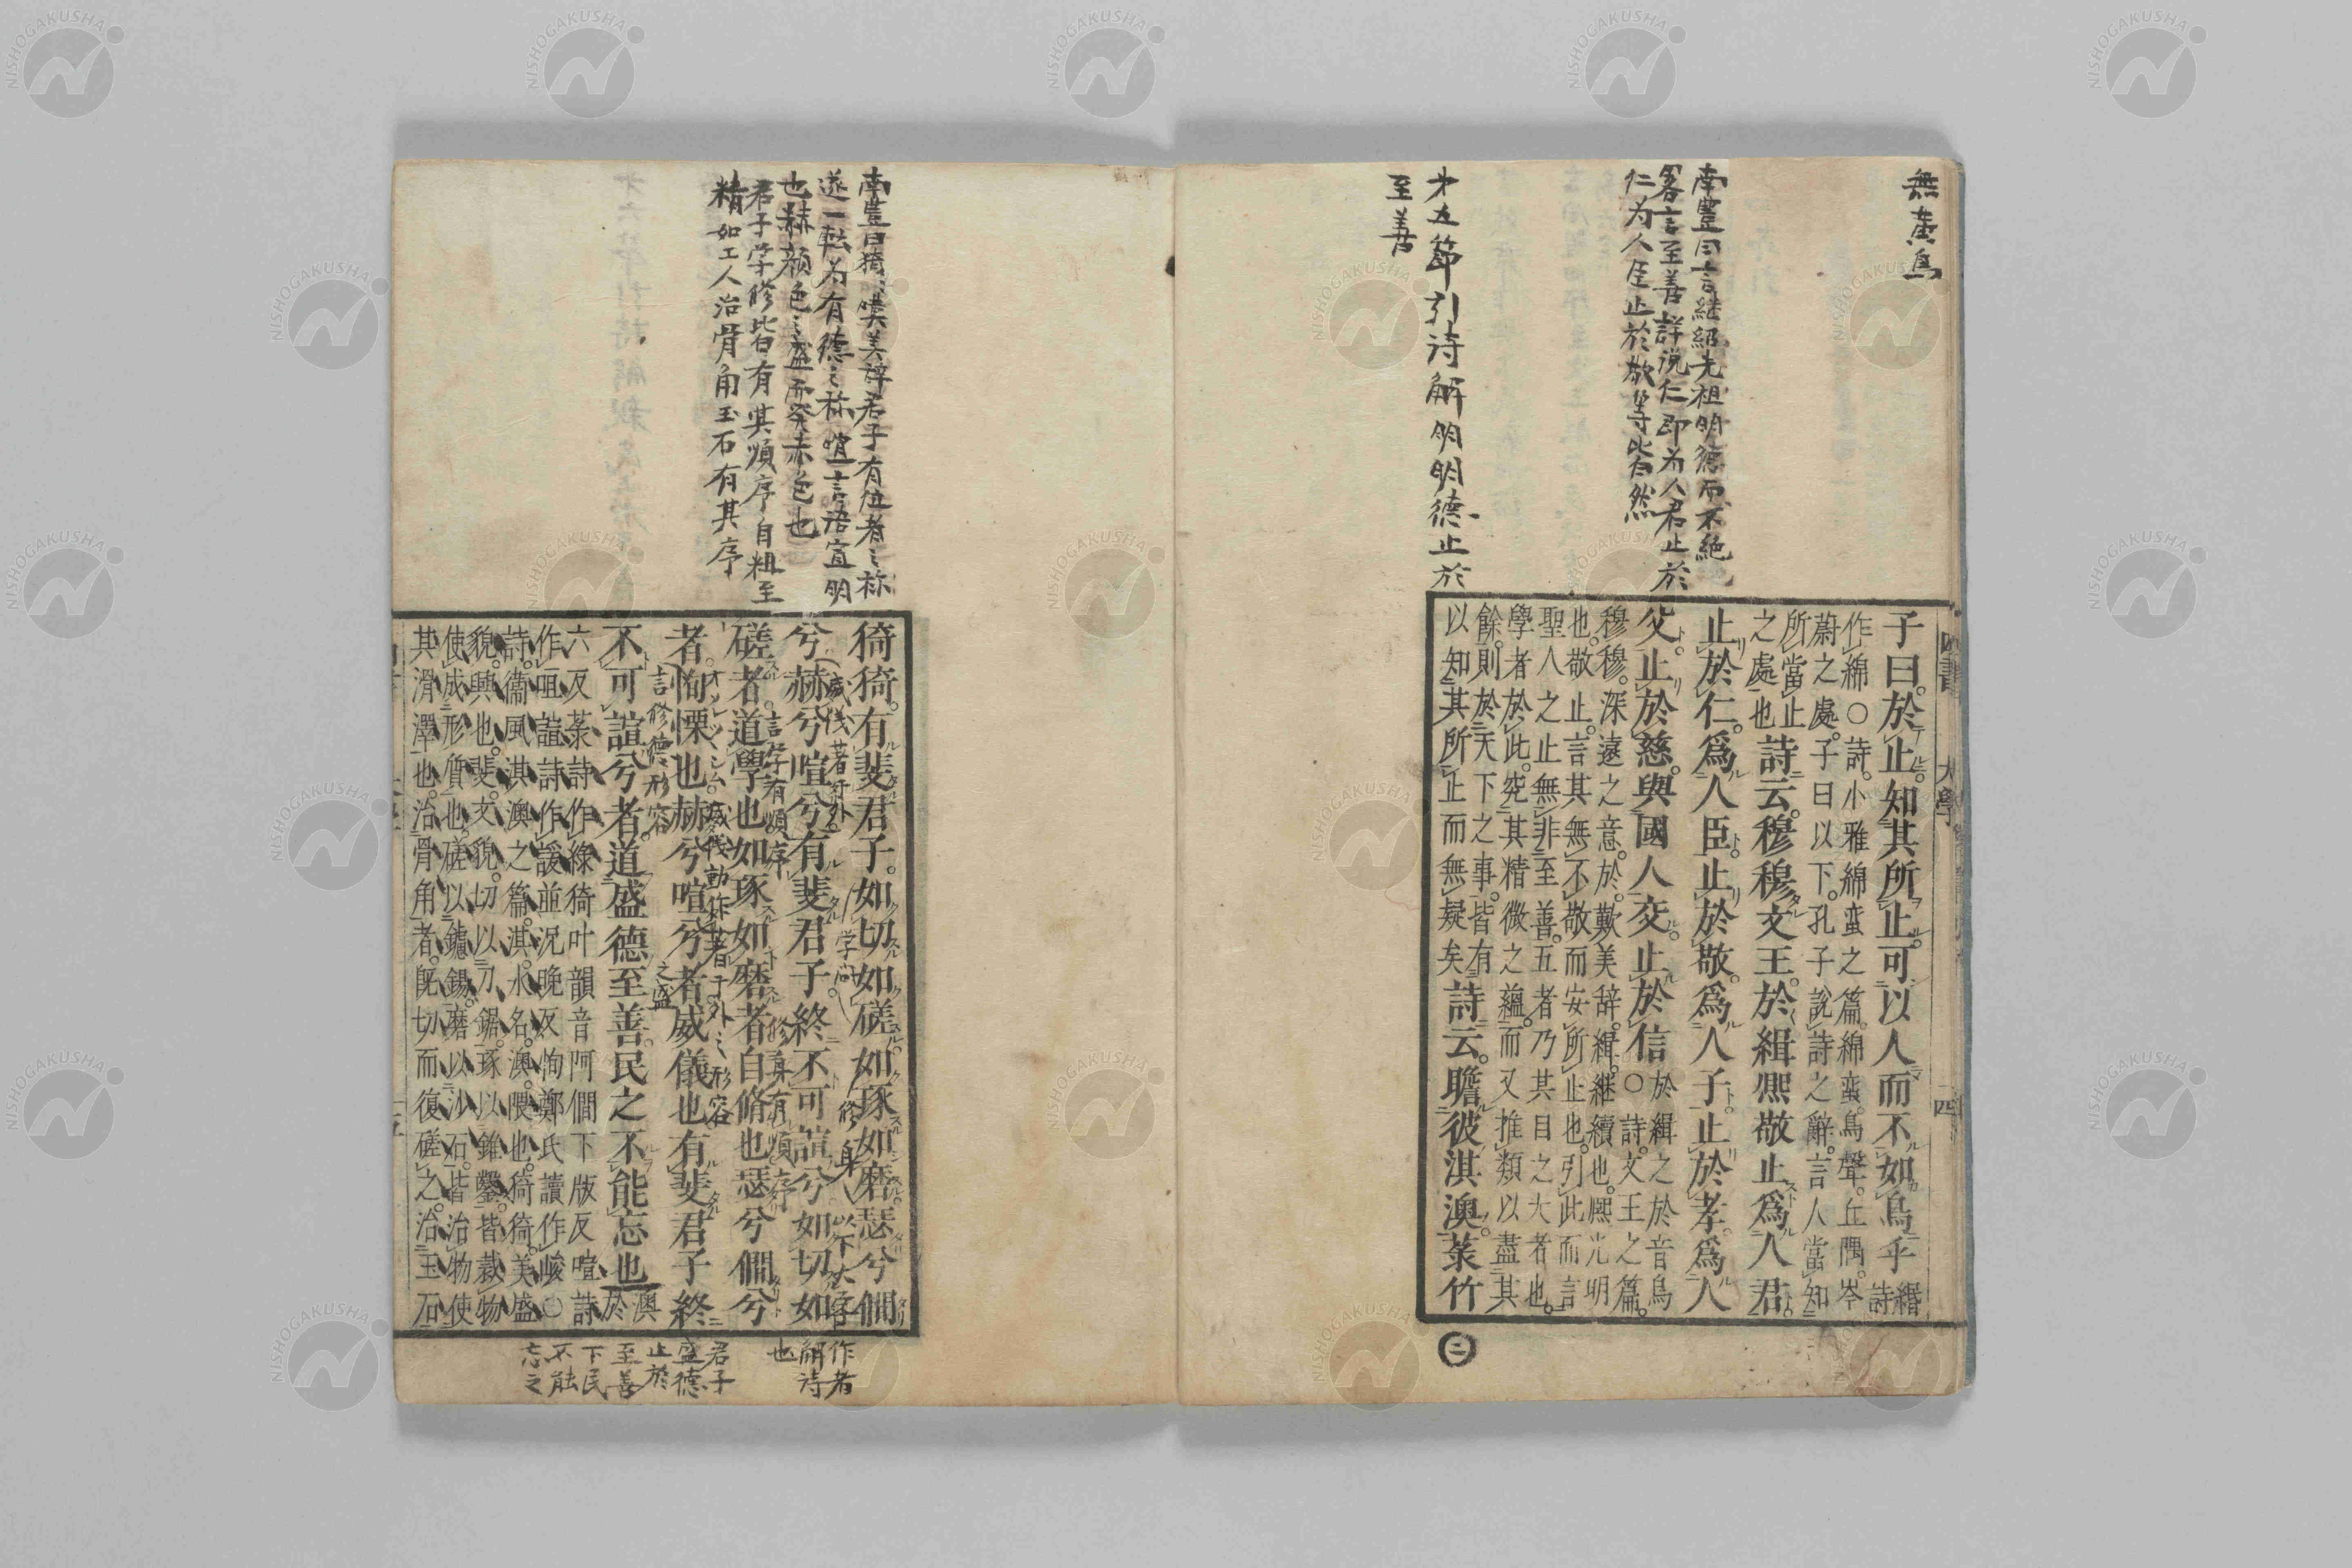 無黄鳥
南豊曰言継紹先祖明徳而不絶
畧言至善詳説仁即為人君止於
仁为人臣止於敬等皆然
才五節引詩解明明德止於
至善
四書 大學 四
子曰。於止。知其所止。可以人而不如鳥乎 緡詩
作綿○詩。小雅綿蛮之篇。綿蛮。鳥聲。丘隅。岑
蔚之處。子曰以下。孔子說詩之辭。言人當知
所當止
之處也 詩云。穆穆文王。於緝熙敬止。爲人君。
止於仁。爲人臣。止於敬。爲人子。止於孝。爲人
父。止於慈。與國人交。止於信 於緝之於音烏
○詩。文王之篇。
穆穆。深遠之意。於。歎美辞。緝。継續也。熙。光明
也。敬止。言其無不敬而安所止也。引此而言
聖人之止無非至善。五者乃其目之大者也。
學者於此。究其精微之蘊。而又推類以盡其
餘。則於天下之事。皆有
以知其所止而無疑矣 詩云。瞻彼淇澳。菉竹
㊁
南豊曰猗〻嘆美辞君子有位者之称
遂一転为有德之称喧言語宣明
也赫顔色之盛而発赤色也
君子学修皆有其順序自粗至
精如工人治骨角玉石有其序
猗猗。有斐君子。如切如磋。如琢如磨。瑟兮僩
兮。赫兮喧兮。有斐君子。終不可諠兮。如切如
磋者。道學也。如琢如磨者。自脩也。瑟兮僩兮
者。恂慄也。赫兮喧兮者。威儀也。有斐君子。終
不可諠兮者。道盛德至善。民之不能忘也 澳
於
六反。菉詩作綠。猗叶韻音阿。僩下版反。喧詩
作咺。諠詩作諼。並況晚反。恂鄭氏讀作峻○
詩。衞風淇澳之篇。淇。水名。澳。隈也。猗猗。美盛
貌。興也。斐。文貌。切以刀鋸。琢以錐鑿。皆裁物
使成形質也。磋以鑢鐋。磨以沙石。皆治物使
其滑澤也。治骨角者。旣切而復磋之。治玉石
威儀著于外
学問
修身
以下大学
言学有順序
修身有順序
威儀動作著于外之形容
言修德形容
之盛
作者
解詩
也
君子
盛德
止於
至善
下民
不能
忘之
NISHOGAKUSHA